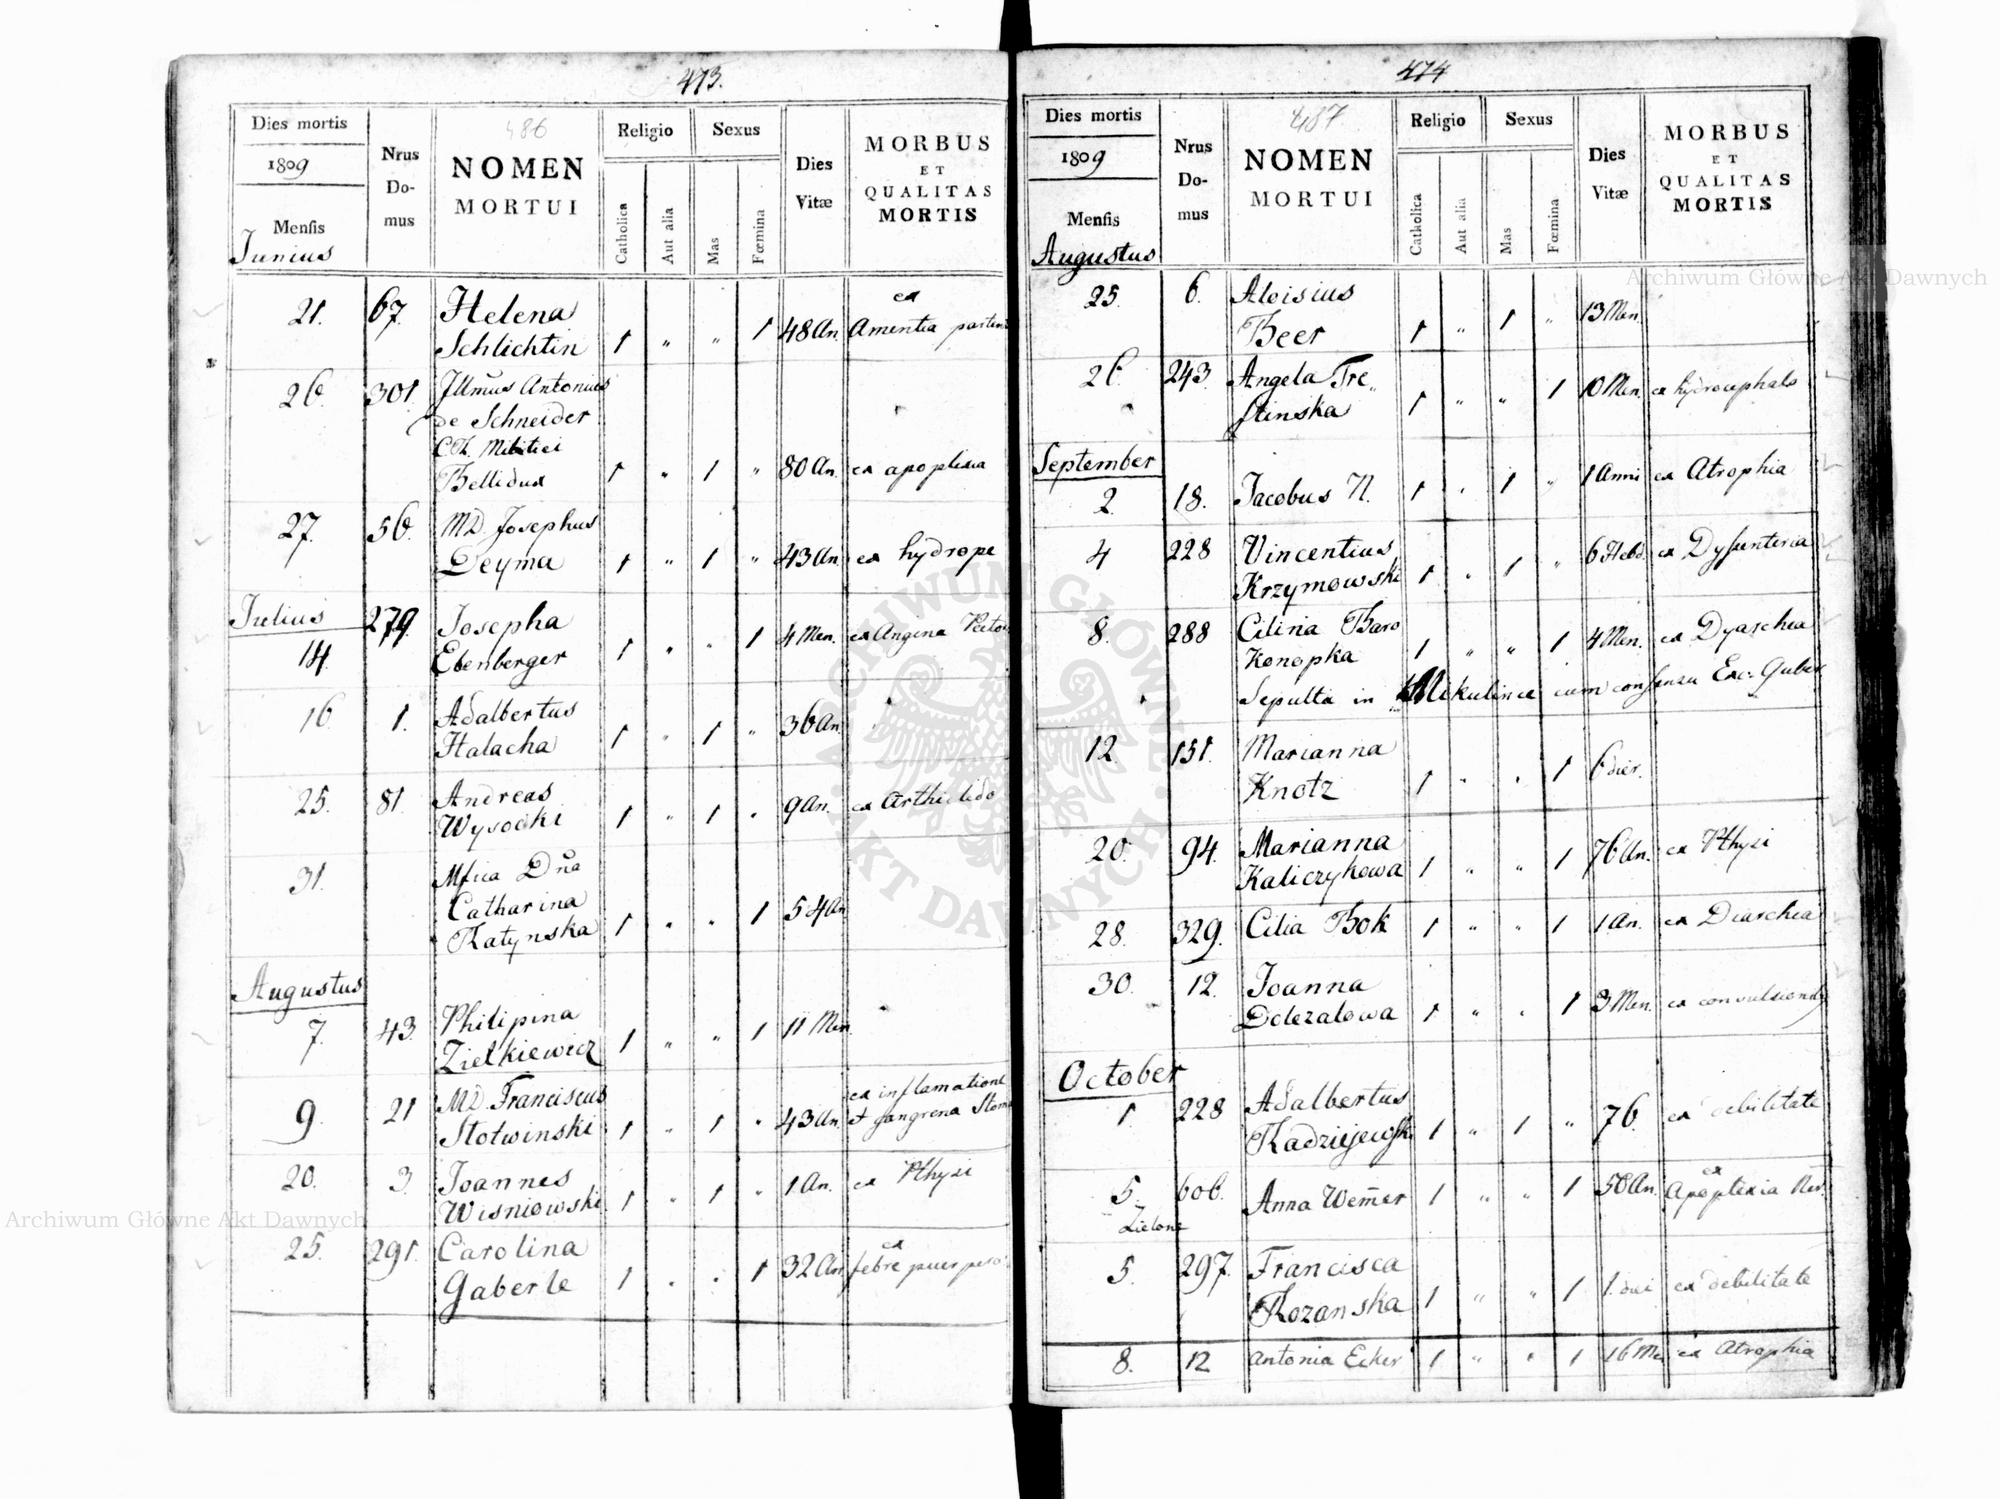 473.
Dies mortis
1809
Mensis
Junius
Nrus
Do-
mus
486
NOMEN
MORTUI
Religio
Catholica
Aut alia
Sexus
Mas
Fœmina
Dies
Vitæ
MORBUS
ET
QUALITAS
MORTIS
21. 67. Helena
Schlichtin 1 " " 1 48 An. ex
Amentia
26. 301. Illmus Antonius
de Schneider
Militiei
1 " 1 " 80 An. ex apoplexia
27. 56. MD. Josephus
Deyma 1 " 1 " 43 An. ex hydrope
Julius
14. 279. Josepha
Ebenberger 1 " " 1 4 Men. ex Angina
16. 1. Adalbertus
Halacha 1 " 1 " 36 An.
25. 81. Andreas
Wysocki 1 " 1 " 9 An. ex
31. Mfica Dña
Catharina
Ratynska 1 " " 1 54 An
Augustus
7. 43. Philipina
Zielkiewicz 1 " " 1 11 Men.
9. 21 MD. Franciscus
Stotwinski 1 " 1 " 43 An. ex inflamatione
et gangrena Stoma
20. 3. Joannes
Wisniowski 1 " 1 " 1 An. ex Pthysi
25. 291. Carolina
Gaberle 1 " " 1 32 An. ex
febre puerpero
474
Dies mortis
1809
Mensis
Augustus
Nrus
Do-
mus
487
NOMEN
MORTUI
Religio
Catholica
Aut alia
Sexus
Mas
Fœmina
Dies
Vitæ
MORBUS
ET
QUALITAS
MORTIS
25. 6. Aloisius
Beer 1 " 1 " 13 Men.
26. 243. Angela Tre"
stinska 1 " " 1 10 Men. ex hydrocephalo
September
2. 18. Jacobus N. 1 " 1 " 1 Anni ex Atrophia
4 228 Vincentius
Krzymowski 1 " 1 " 6 Hebd. ex Dysenteria
8. 288 Cilina Baro
Konopka 1 " " 1 4 Men. ex Dyarchea
Sepulta in Mikulince cum consensu Exc. Guber
12. 151. Marianna
Knotz 1 " " 1 6 dier.
20. 94. Marianna
Kaliczykowa 1 " " 1 76 An. ex Pthysi
28. 329. Cilia Bok 1 " " 1 1 An. ex Diarchea
30. 12. Joanna
Dolezalowa 1 " " 1 3 Men. ex convulsiondg
October
1 228 Adalbertus
Radziejewski 1 " 1 " 76. ex debilitate
5. 606. Anna Wem̄er 1 " " 1 56 An. ex
Apoplexia Ner.
Zielone
5. 297. Francisca
Rozanska 1 " " 1 1. diei ex debilitate
8. 12 Antonia Ecker 1 " " 1 16 Me ex Atrophia
Archiwum Główne Akt Dawnych
ARCHIWUM GŁÓWNE AKT DAWNYCH
Archiwum Główne Akt Dawnych